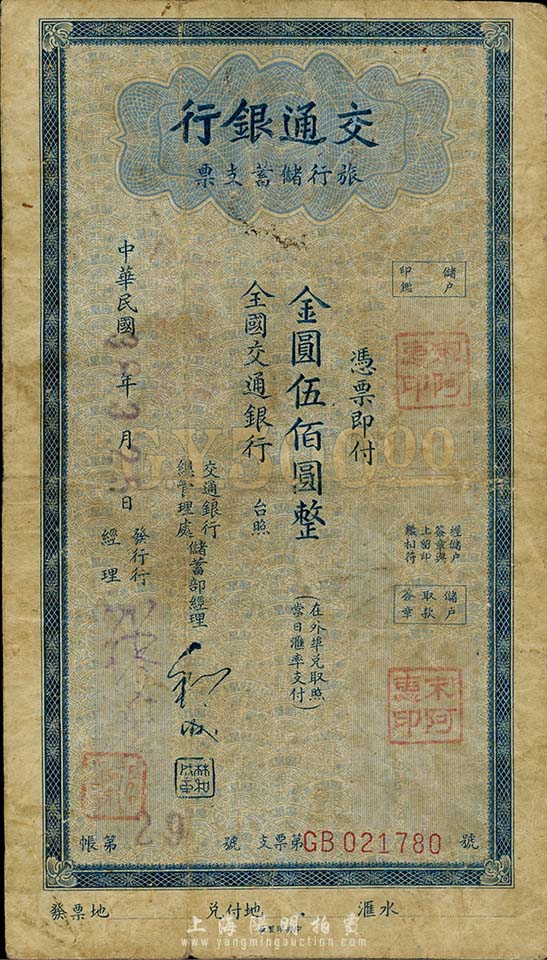 交通銀行
旅行儲蓄支票
儲戶
印鑑
憑票即付
金圓伍佰圓整
(在外埠兌取照
當日滙率支付)
全國交通銀行 台照
交通銀行
總管理處
儲蓄部經理
發行行
經理
中華民國 年 月 日
儲戶
取款
簽章
阿惠印
阿惠印
GY50000
帳第 29 號
支票第GB 021780 號
發票地
兌付地
滙水
上海陽明拍賣
www.yangmingauction.com